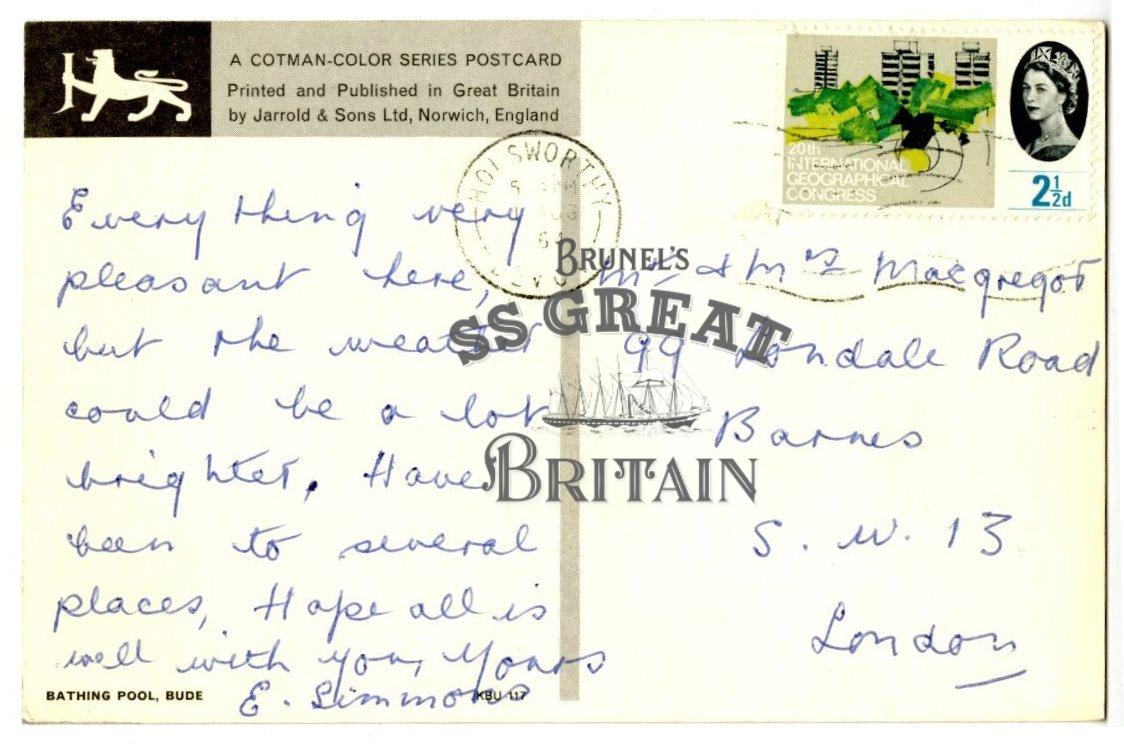 A COTMAN-COLOR SERIES POSTCARD
Printed and Published in Great Britain
by Jarrold & Sons Ltd, Norwich, England
20th
INTERNATIONAL
GEOGRAPHICAL
CONGRESS
2½d
HOLSWORTHY
Every thing very
pleasant here,
but the weather
could be a lot
brighter. Have
been to several
places, Hope all is
well with you, Yours
E. Simmons
Mr & Mrs Macgregor
99 Lonsdale Road
Barnes
S. W. 13
London
BRUNEL'S
SS GREAT
BRITAIN
BATHING POOL, BUDE
KBU 117